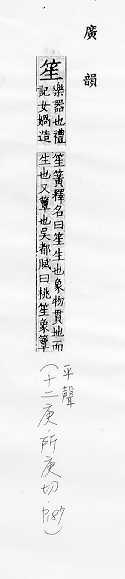 廣韻
笙
樂器也禮
記女媧造
笙簧釋名曰笙生也象物貫地而
生也又簟也吳都賦曰桃笙象簟
平聲
(十二庚.所庚切.P.187)